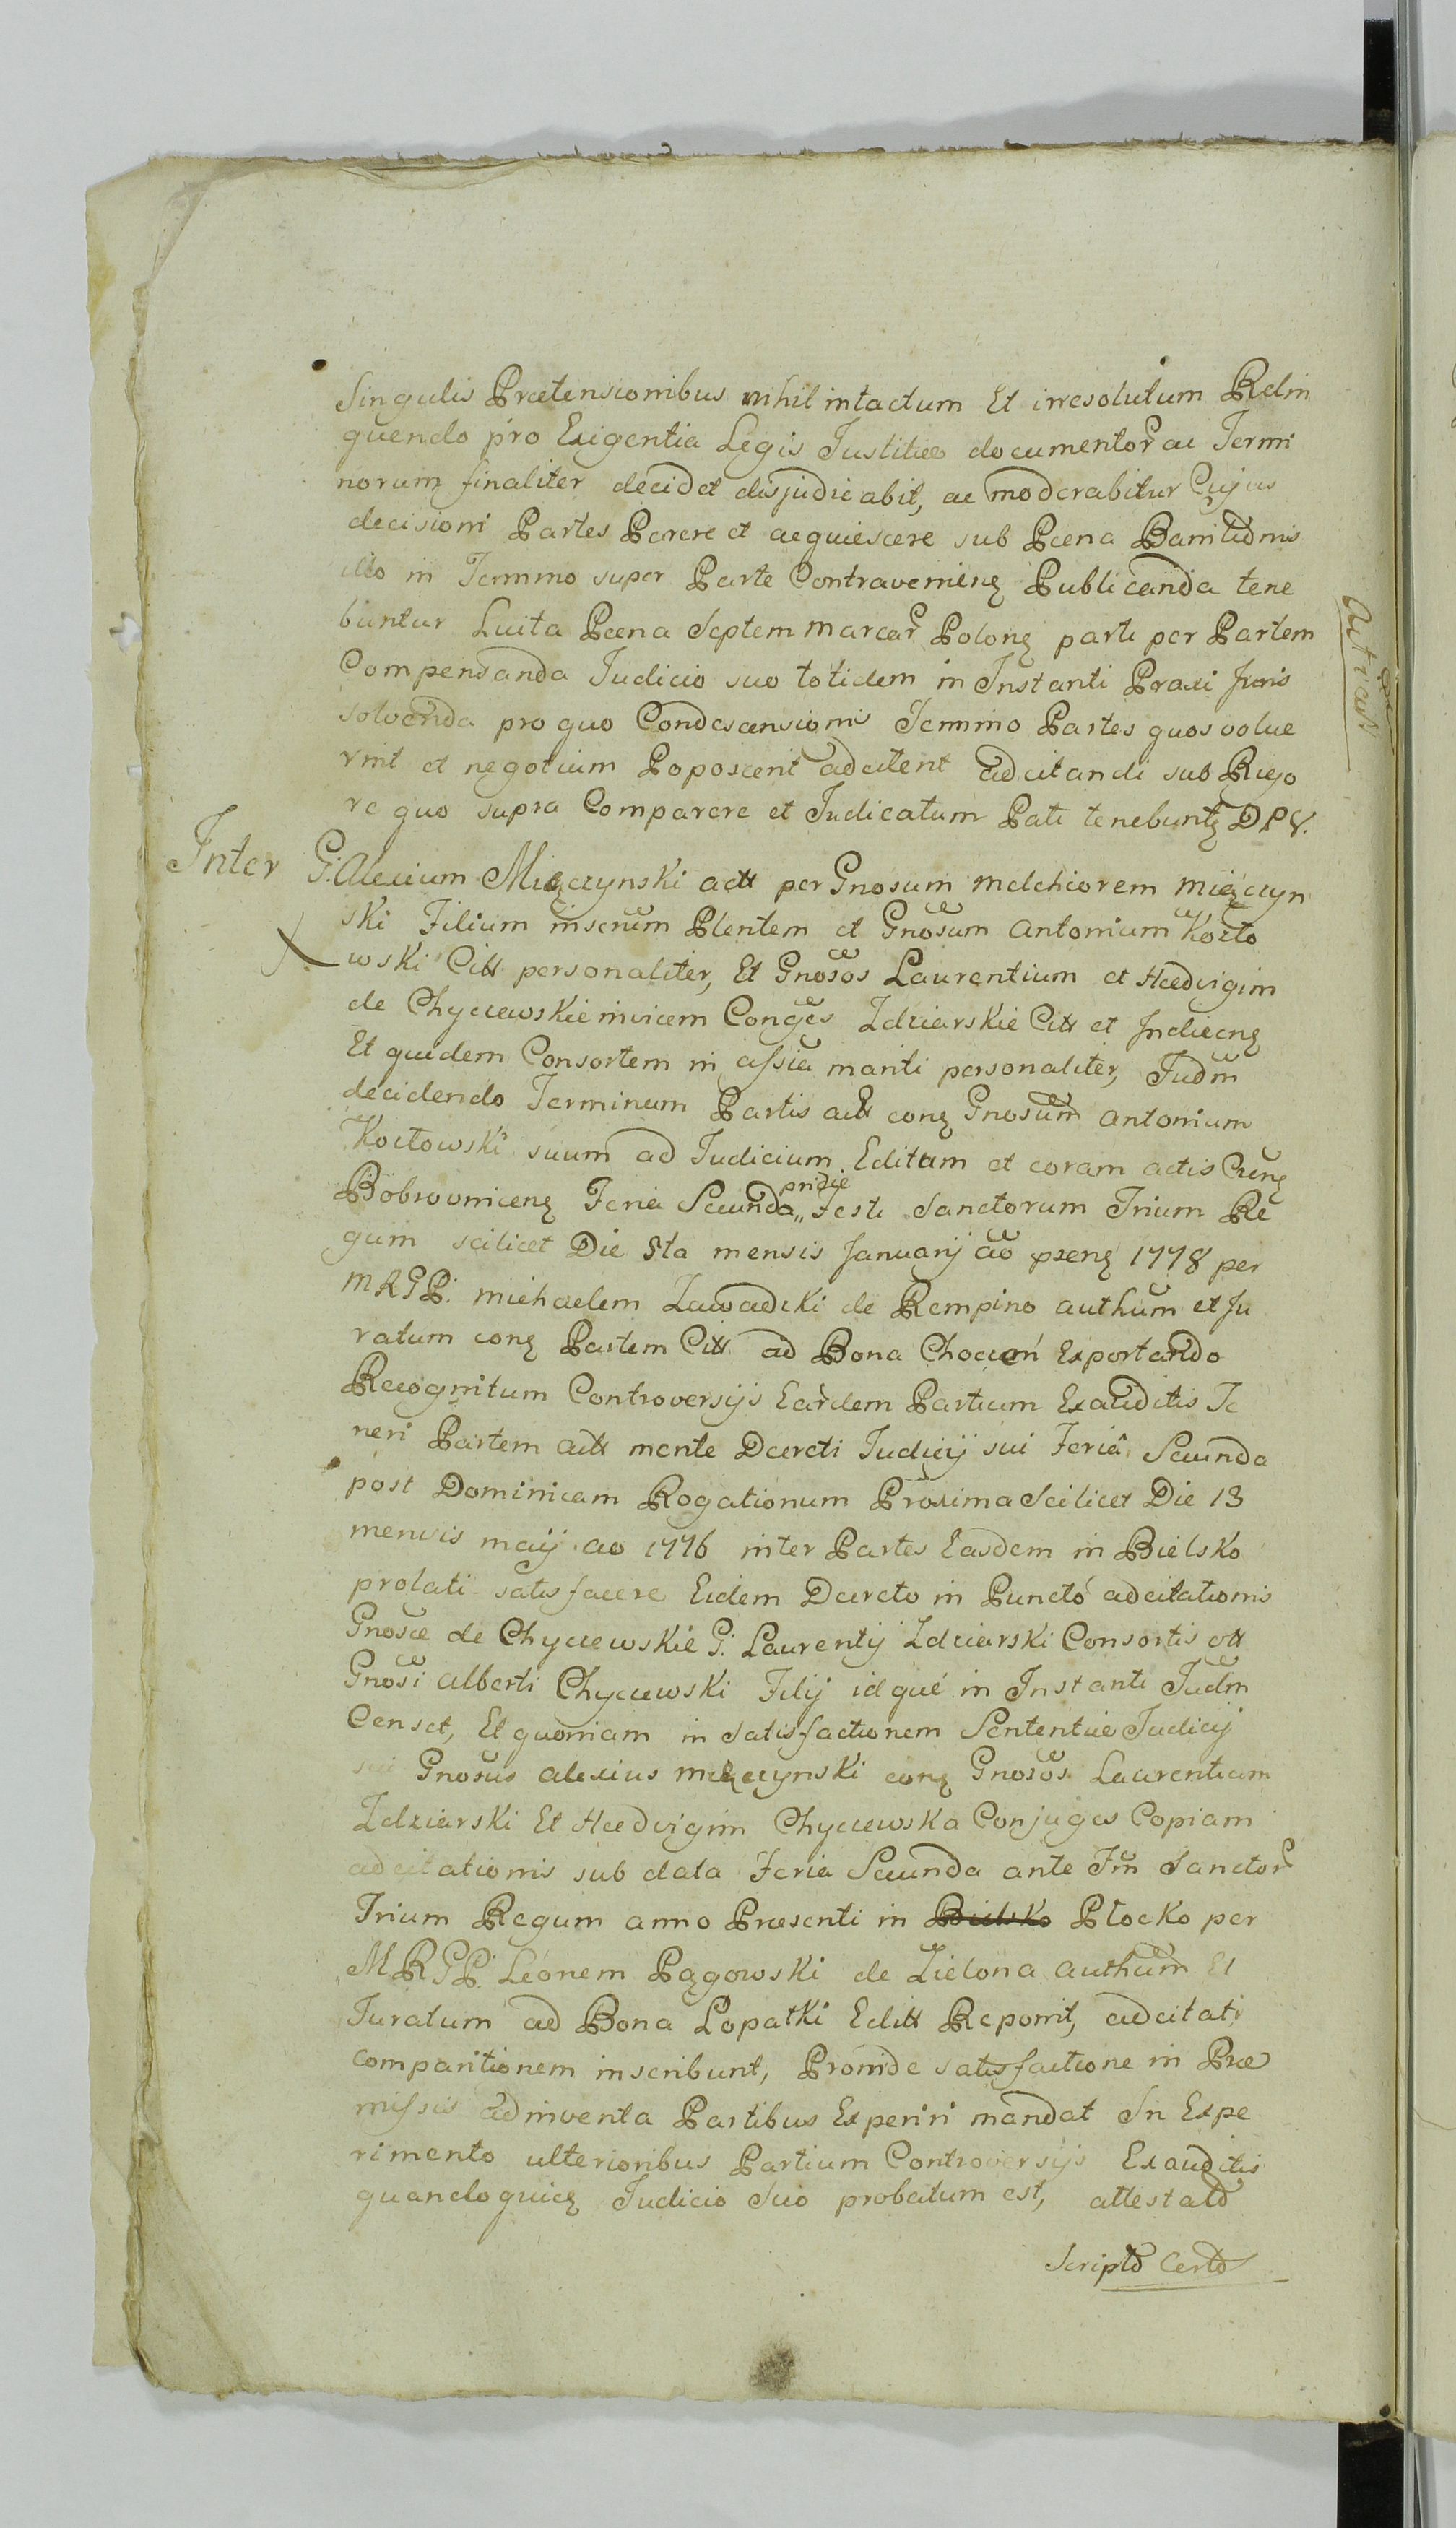 Singulis Prætensionibus nihil intactum Et irresolutum Relin
quendo pro Exigentia Legis Justitiæ documentor ac Termi
norum finaliter decidet disjudicabit, ac moderabitur Cujus
decisioni Partes Parere et acquiescere sub Pœna Banitionis
illo in Termino super Parte Contravenienq Publicanda tene
buntur Luita Pœna Septem marcar Polonq parti per Partem
Compensanda Judicio suo totidem in Instanti Praxi Juris
solvenda pro quo Condescensionis Termino Partes quos volue
rint et negotium Poposcerit adcitent adcitandi sub Rigo
re quo supra Comparere et Judicatum Pati tenebuntq DPV.
Inter G. Alexium Mięczynski actt per Gnosum Melchiorem Mięczyn
ski Filium inserum Plentem et Gnosum Antonium Kozło
wski Citt personaliter, Et Gnosos Laurentium et Hedvigim
de Chyczewskie invicem Conges Zdziarskie Citt et Indiecnq
Et quidem Consortem in assia mariti personaliter, Judm
decidendo Terminum Partis actt conq Gnosum Antonium
Kozłowski suum ad Judicium Editum et coram actis Crenq
Bobrovnicenq Feria Secunda pridie Festi Sanctorum Trium Re
gum scilicet Die 5ta mensis Januarij ao przenq 1778 per
MRGP. Michaelem Zawadzki de Rempino authum et Ju
ratum conq Partem Citt ad Bona Choczeń Exportando
Recognitum Controversijs Eardem Partium Exauditis Te
neri Partem actt mente Decreti Judicij sui Feria Secunda
post Dominicam Rogationum Proxima Scilicet Die 13
mensis maij ao 1776 inter Partes Easdem in Bielsko
prolati satisfacere Eidem Decreto in Puncto adcitationis
Gnosæ de Chyczewskie G. Laurentij Zdziarski Consortis ott
Gnosi Alberti Chyczewski Filij idque in Instanti Judm
Censet, Et quoniam in satisfactionem Sententiæ Judicij
sui Gnosus Alexius Mięczynski conq Gnosos Laurentium
Zdziarski Et Hedvigim Chyczewska Conjuges Copiam
adcitationis sub data Feria Secunda ante Fm Sanctor
Trium Regum anno Præsenti in Bielsko Płocko per
MRGP. Leonem Pągowski de Zielona authum Et
Juratum ad Bona Lopatki Editt Reponit, adcitati
comparitionem inscribunt, Proinde satisfactione in Præ
missis adinventa Partibus Experiri mandat In Expe
rimento ulterioribus Partium Controversijs Exauditis
quandoquidq Judicio Suo probatum est, attestato
Scripto Certo